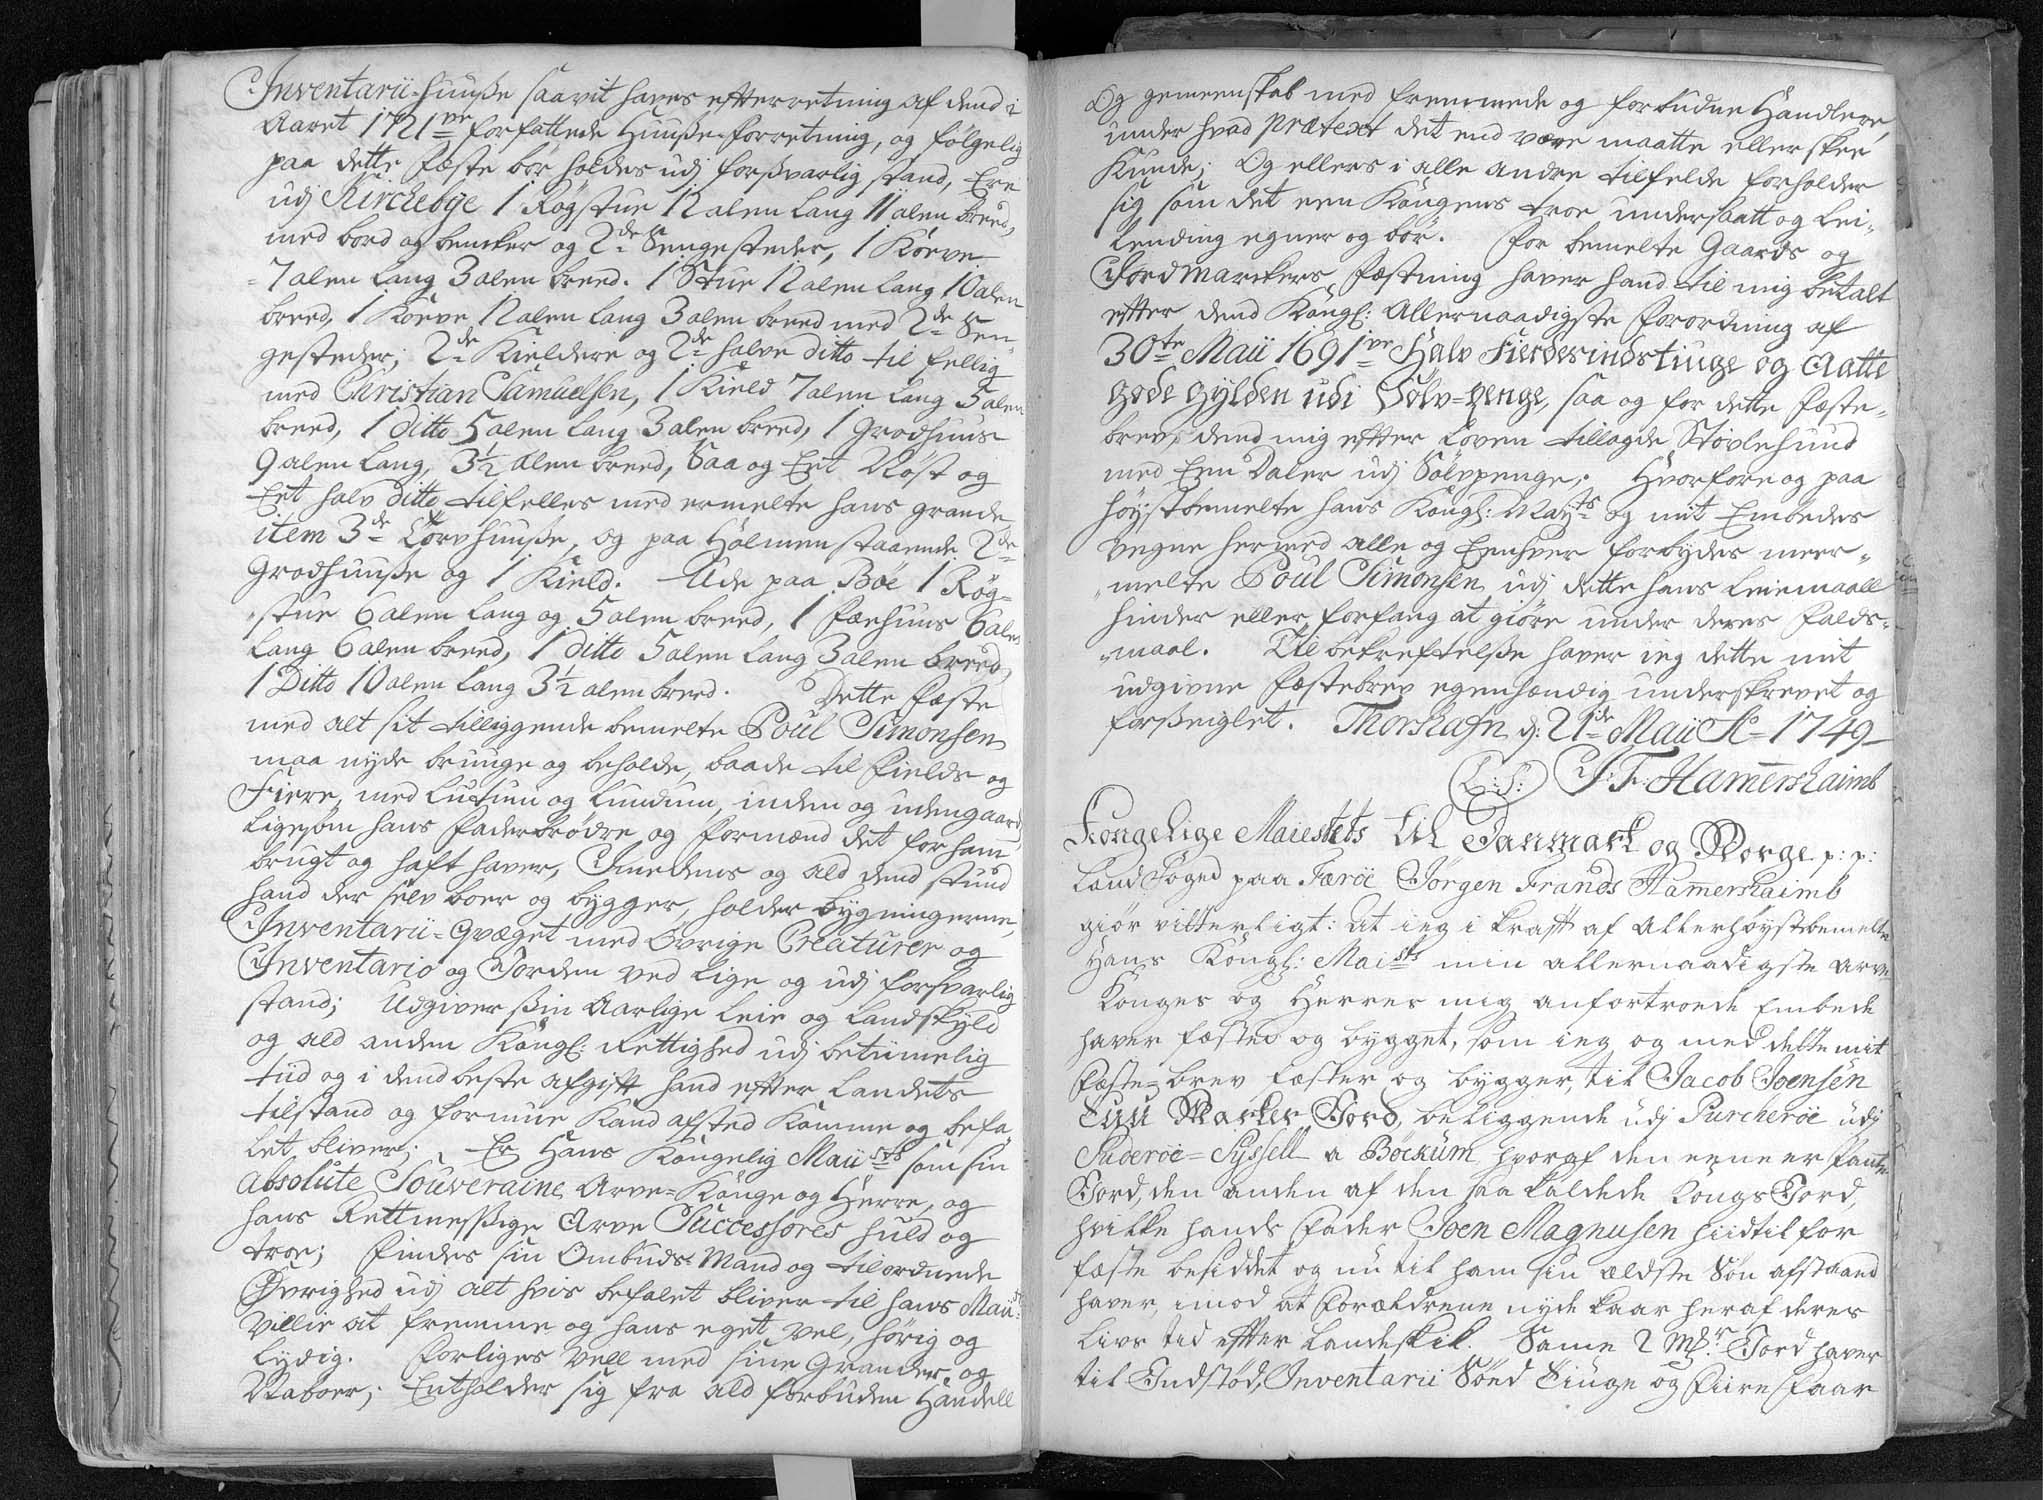 Inventarii-huuße saavit haves effterretning af dend i
Aaret 1721 ve forfattede Huuße-forretning, og følgelig
paa dette fæste bør holdes udj forßvarlig stand, Ere
udj Kirchebye 1 Røgstue 12 alen lang 11 alen breed,
med bord og bencker og 2de Sengesteder, 1 Kørve
7 alen lang 3 alen breed. 1 Stue 12 alen lang 10 alen
breed, 1 Kørve 12 alen lang 3 alen breed med 2de Sen-
gesteder; 2de Kieldere og 2de halve ditto til fellig
med Christian Samuelsen, 1 Kield 7 alen lang 5 alen
breed, 1 ditto 5 alen lang 3 alen breed, 1 Grodhuus
9 alen lang, 3½ alen breed, Saa og Eet Nøst og
Eet halv ditto tilfelles med ermelte hans grande
item 3de Torvhuuße, og paa Holmen staaende 2de
Grodhuuße og 1 Kield. Ude paa Bøe 1 Røg-
stue 6 alen lang og 5 alen breed, 1 Fæehuus 6 alen
lang 6 alen breed, 1 ditto 5 alen lang 3 alen breed,
1 Ditto 10 alen lang 3½ alen breed. Dette Fæste
med alt sit tilliggende bemelte Poul Simonsen
maa nyde bruuge og beholde, baade til Fields og
Fiere, med lutum og lundum, inden og udengaards
ligesom hans Faderbrødre og Formænd det for ham
brugt og hafft haver, Imedens og ald dend stund
hand der selv boer og bygger, holder bygningerne,
Inventarii-Qvæget med øvrige Creaturer og
Inventario og Jorden ved lige og udj forsvarlig
stand; Udgiver ßin Aarlige leie og Landskyld
og ald anden Kongl: Rettighed udj betiimelig
tiid og i dend beste afgifft hand effter Landets
tilstand og formue Kand afsted Komme og befa-
let bliver; Er Hans Kongelig Maiisᵗˢ som sin
absolute Souveraine Arve-Konge og Herre, og
hans Rettmeßige Arve Successores huld og
troe; Findes sin Ombuds-Mand og tilordnede
Øvrighed udj alt hvis befalet bliver til hans Maiiᵗˢ
villie at fremme og hans eget vel, hørig og
lydig. Forliges vell med sine Grander og
Naboer; Entholder sig fra ald forbuden Handell
Og gemeenskab med fremmede og forbudne Handlere,
under hvad prætext det end være maatte eller skee
Kunde; Og ellers i alle andre tilfelde forholder
sig som det een Kongens troe undersaatt og Lei-
lending egner og bør. For bemelte Gaards og
Jordmarckers Fæstning haver hand til mig betalt
effter dend Kongl: Allernaadigste Forordning af
30te Maii 1691 ve Halv Fierdesindstiuge og Aatte
gode gylden udi Sølv-penge, saa og for dette Fæste-
brev, dend mig effter Loven tillagde Støvlehuud
med Een Daler udj Sølvpenge;. Hvorfore og paa
høystbemelte hans Kongl: Mayᵗˢ og mit Embedes
vegne hermed alle og Eenhver forbydes meer-
melte Poul Simonsen udj dette hans Leiemaall
hinder eller forfang at giøre under deres Falds-
maal. Til bekrefftelße haver ieg dette mit
udgivne Fæstebrev egenhændig underskrevet og
forßeiglet. Thorshafn d: 21de Maii Ao 1749
(L:S:) J: F: Hamershaimb
Kongelige Maiestets til Danmark og Norge p: p:
Land Foged paa Færöe Jörgen Frands Hamershaimb
giør vitterligt: At ieg i krafft af Allerhøystbemelte
Hans Kongl: Maiˢᵗˢ min allernaadigste Arve
Konges og Herres mig anfortroede Embede
haver fæsted og bygget, som ieg og med dette mit
Fæste-brev fæster og bygger, til Jacob Joensen
Tuu Marker Jord, beliggende udj Purcheröe udj
Suderöe-Syssell a Böckum hvoraf den eene er Pante
Jord, den anden af den saa kaldede Kongs Jord,
hvilke hands Fader Joen Magnusen hiidtil for
fæste besiddet og nu til ham sin ældste Søn afstaaed
haver, imod at Forældrene nyde kaar heraf deres
livs tid effter Landeskik. Same 2 Mkr Jord haver
til Indstød, Inventarii Sønd Tiuge og Fiire Faar